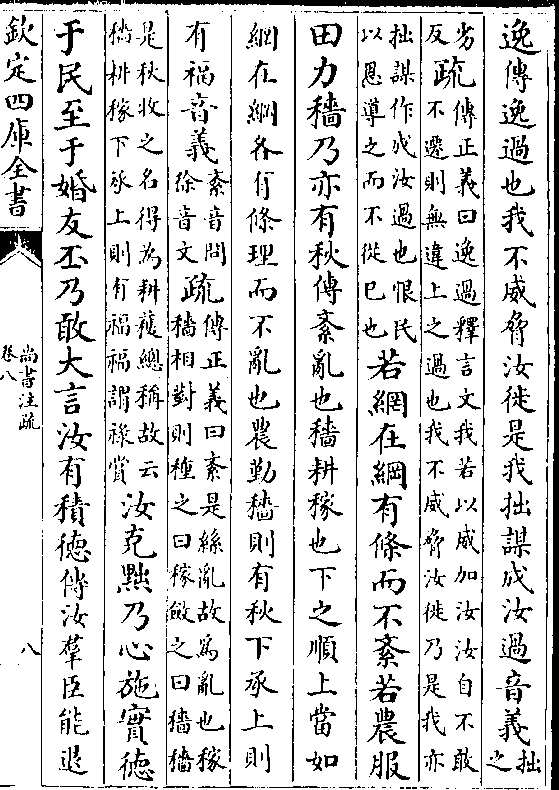 逸傳逸過也我不威脅汝徙是我拙謀成汝過音義拙之
劣反疏傳正義曰逸過釋言文我若以威加汝汝自不敢
不遷則無違上之過也我不威脅汝徙乃是我亦
拙謀作成汝過也恨民
以恩導之而不從已也若網在綱有條而不紊若農服
田力穡乃亦有秋傳紊亂也穡耕稼也下之順上當如
網在綱各有條理而不亂也農勤穡則有秋下承上則
有福音義紊音問
徐音文疏傳正義曰紊是絲亂故為亂也稼
穡相對則種之曰稼斂之曰穡穡
是秋收之名得為耕穫總稱故云
穡耕稼下承上則有福福謂祿賞汝克黜乃心施實德
于民至于婚友丕乃敢大言汝有積德傳汝羣臣能退
欽定四庫全書
尚書注疏
卷八
八